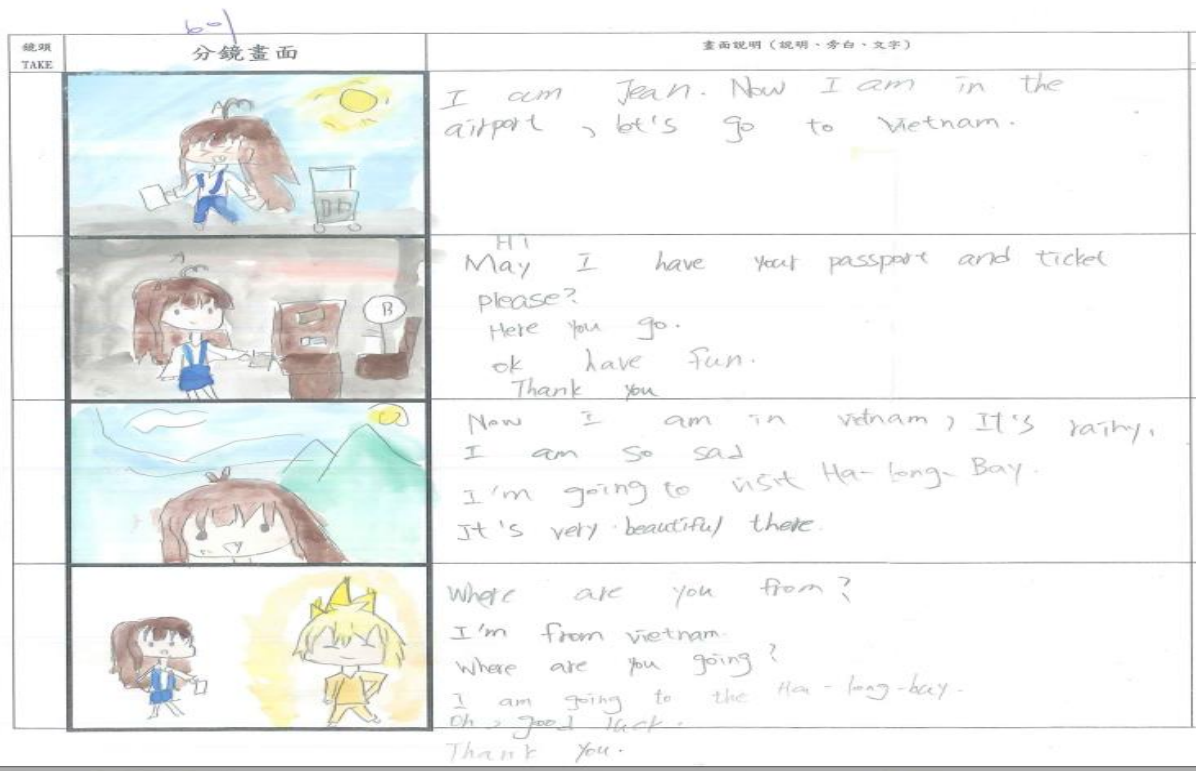 boy
鏡頭
TAKE
分鏡畫面
畫面說明(說明、旁白、文字)
I am Jean. Now I am in the
airport, let's go to Vietnam.
Hi
May I have your passport and ticket
please?
Here you go.
ok have fun.
Thank you
B
Now I am in vietnam, It's rainy.
I am so sad
I'm going to visit Ha-long-Bay.
It's very beautiful there.
Where are you from?
I'm from vietnam.
Where are you going?
I am going to the Ha-long-bay.
Oh, good luck.
Thank you.